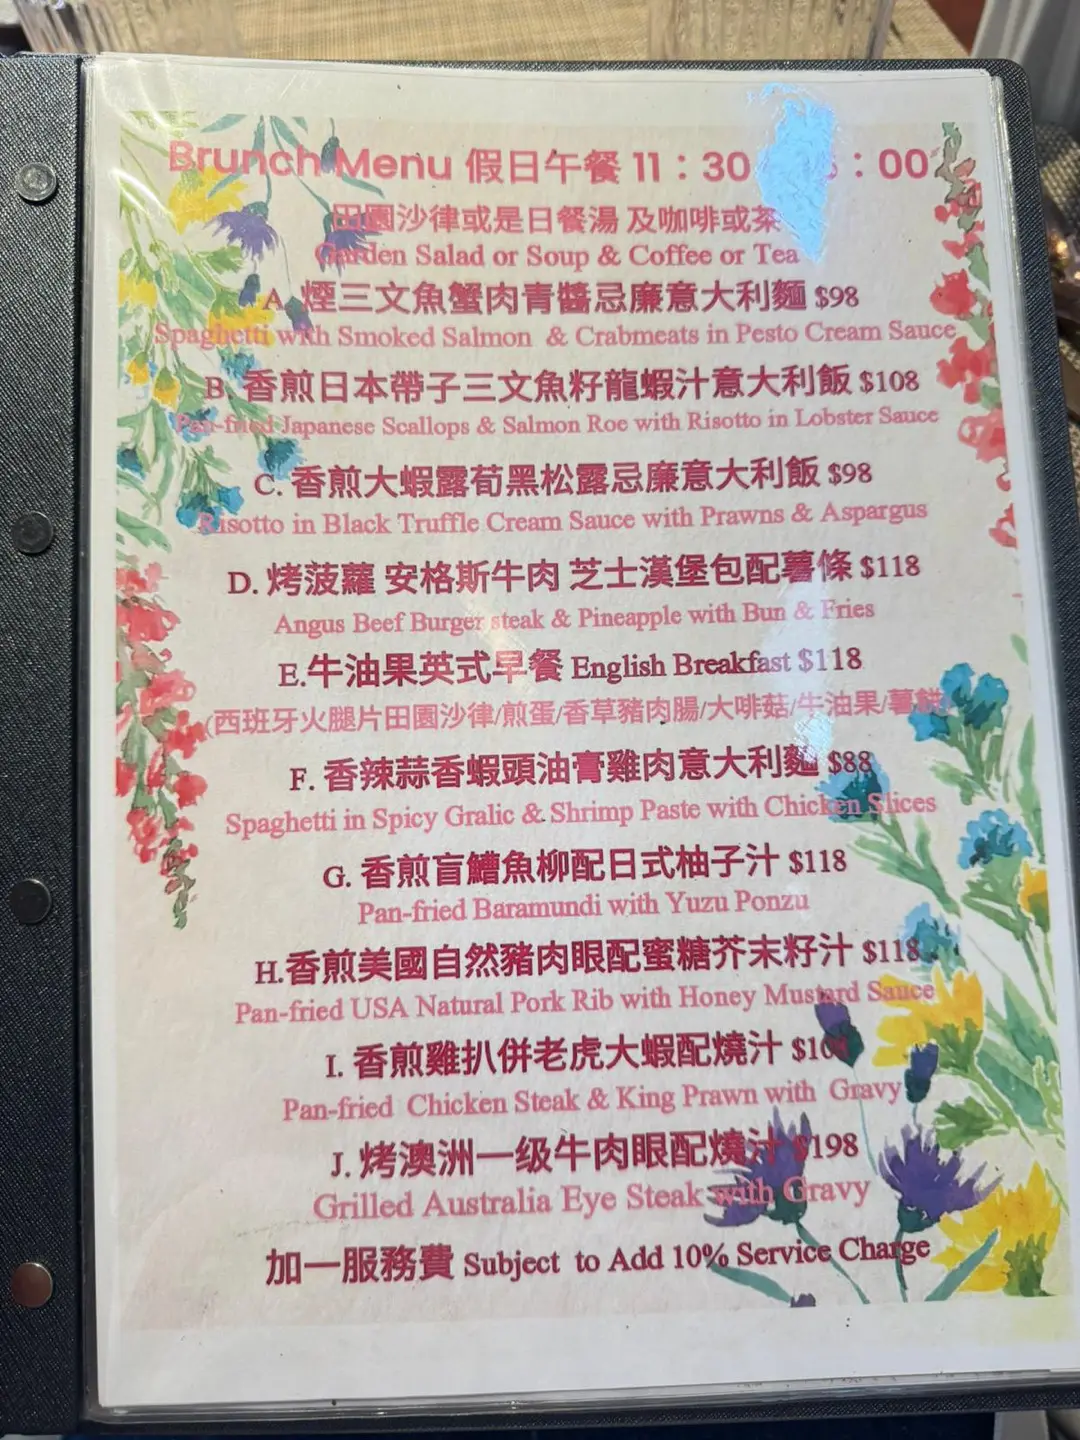 Brunch Menu 假日午餐 11：30 ：00
田園沙律或是日餐湯 及咖啡或茶
Garden Salad or Soup & Coffee or Tea
A. 煙三文魚蟹肉青醬忌廉意大利麵 $98
Spaghetti with Smoked Salmon & Crabmeats in Pesto Cream Sauce
B. 香煎日本帶子三文魚籽龍蝦汁意大利飯 $108
Pan-fried Japanese Scallops & Salmon Roe with Risotto in Lobster Sauce
C. 香煎大蝦露荀黑松露忌廉意大利飯 $98
Risotto in Black Truffle Cream Sauce with Prawns & Aspargus
D. 烤菠蘿 安格斯牛肉 芝士漢堡包配薯條 $118
Angus Beef Burger steak & Pineapple with Bun & Fries
E.牛油果英式早餐 English Breakfast $118
(西班牙火腿片田園沙律/煎蛋/香草豬肉腸/大啡菇/牛油果/薯餅)
F. 香辣蒜香蝦頭油膏雞肉意大利麵 $88
Spaghetti in Spicy Gralic & Shrimp Paste with Chicken Slices
G. 香煎盲鰽魚柳配日式柚子汁 $118
Pan-fried Baramundi with Yuzu Ponzu
H.香煎美國自然豬肉眼配蜜糖芥末籽汁 $118
Pan-fried USA Natural Pork Rib with Honey Mustard Sauce
I. 香煎雞扒併老虎大蝦配燒汁
Pan-fried Chicken Steak & King Prawn with Gravy
J. 烤澳洲一级牛肉眼配燒汁 $198
Grilled Australia Eye Steak with Gravy
加一服務費 Subject to Add 10% Service Charge